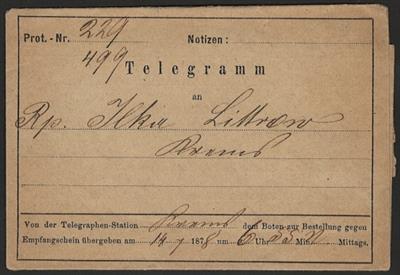 Prot. - Nr. 229 Notizen:
499
Telegramm
an
Rp. Ilka Littrow
Krems
Von der Telegraphen-Station Krems dem Boten zur Bestellung gegen
Empfangschein übergeben am 14/7 1878 um 6 Uhr Min. Mittags.